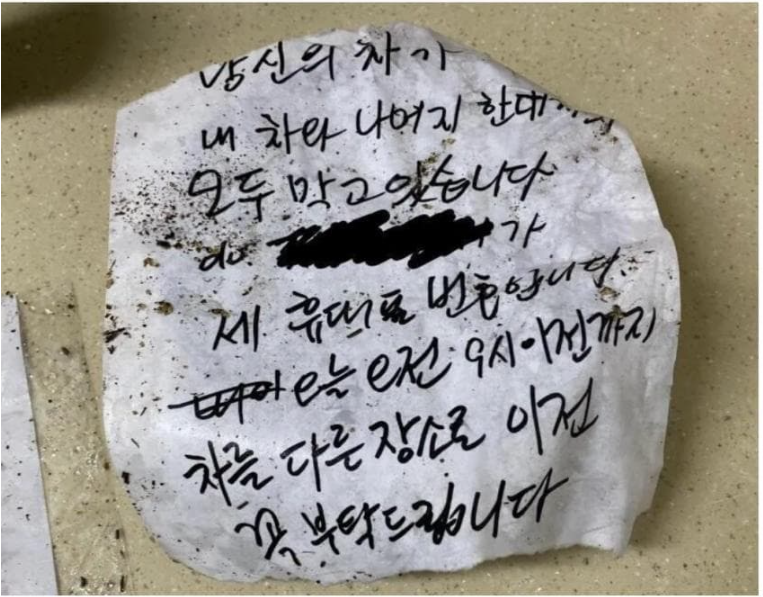 당신의 차가
내 차와 나머지 한대까지
모두 막고 있습니다
가
제 휴대폰 번호입니다.
오늘 오전 9시 이전까지
차를 다른 장소로 이전
꼭 부탁드립니다